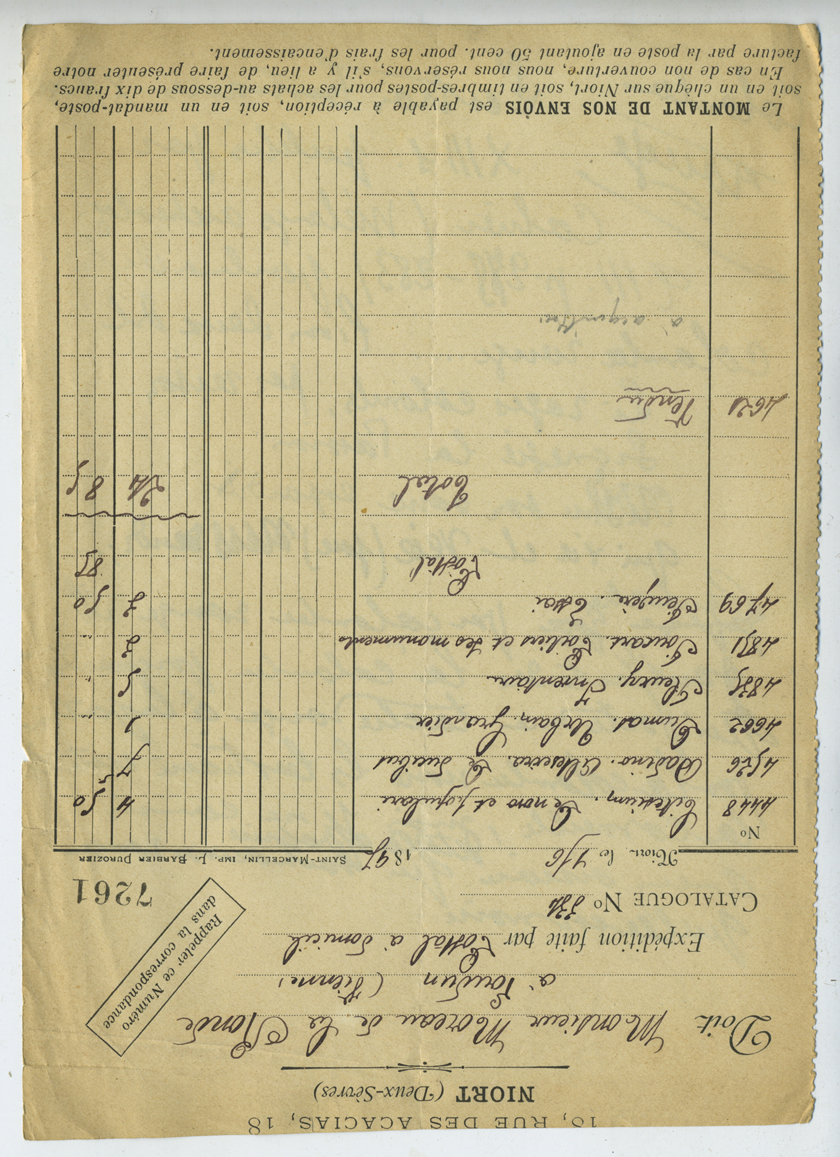 18, RUE DES ACACIAS, 18
NIORT (Deux-Sèvres)
Doit Monsieur Moreau de la Ronde
à Loudun (Vienne)
Expédition faite par Postal à domicile
CATALOGUE No 334
Rappeler ce Numéro
dans la correspondance
7261
Niort le 1/6 1897
SAINT-MARCELLIN, IMP. L. BARBIER DUROZIER
No
4448 . Le noro et populari 4 50
4576 4
4662 Dumas. Urbain Grandier 1
4835 Fleury. Inventaire 5
4851 Foucart. Poitiers et ses monuments 3
4769 Feugère. Essai 3 50
Postal 85
Total 24 85
4621 Vendu
Le MONTANT DE NOS ENVOIS est payable à réception, soit en un mandat-poste,
soit en un chèque sur Niort, soit en timbres-postes pour les achats au-dessous de dix francs.
En cas de non couverture, nous nous réservons, s'il y a lieu, de faire présenter notre
facture par la poste en ajoutant 50 cent. pour les frais d'encaissement.